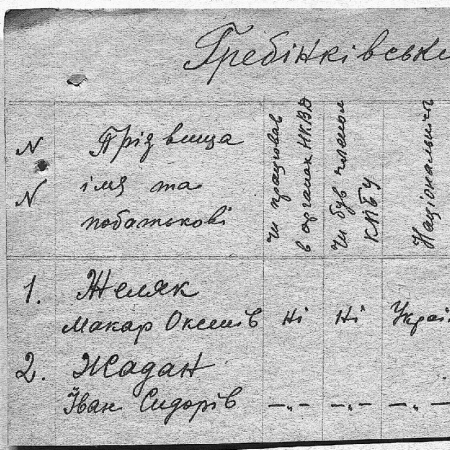 Гребінківськи
N
N
Прізвища
імя та
побатькові
чи працював
в органах НКВД
чи був членом
КПБУ
Національність
1. Желяк
Макар Оксенів Ні Ні Украї
2. Жадан
Іван Сидорів —"— —"— —"—